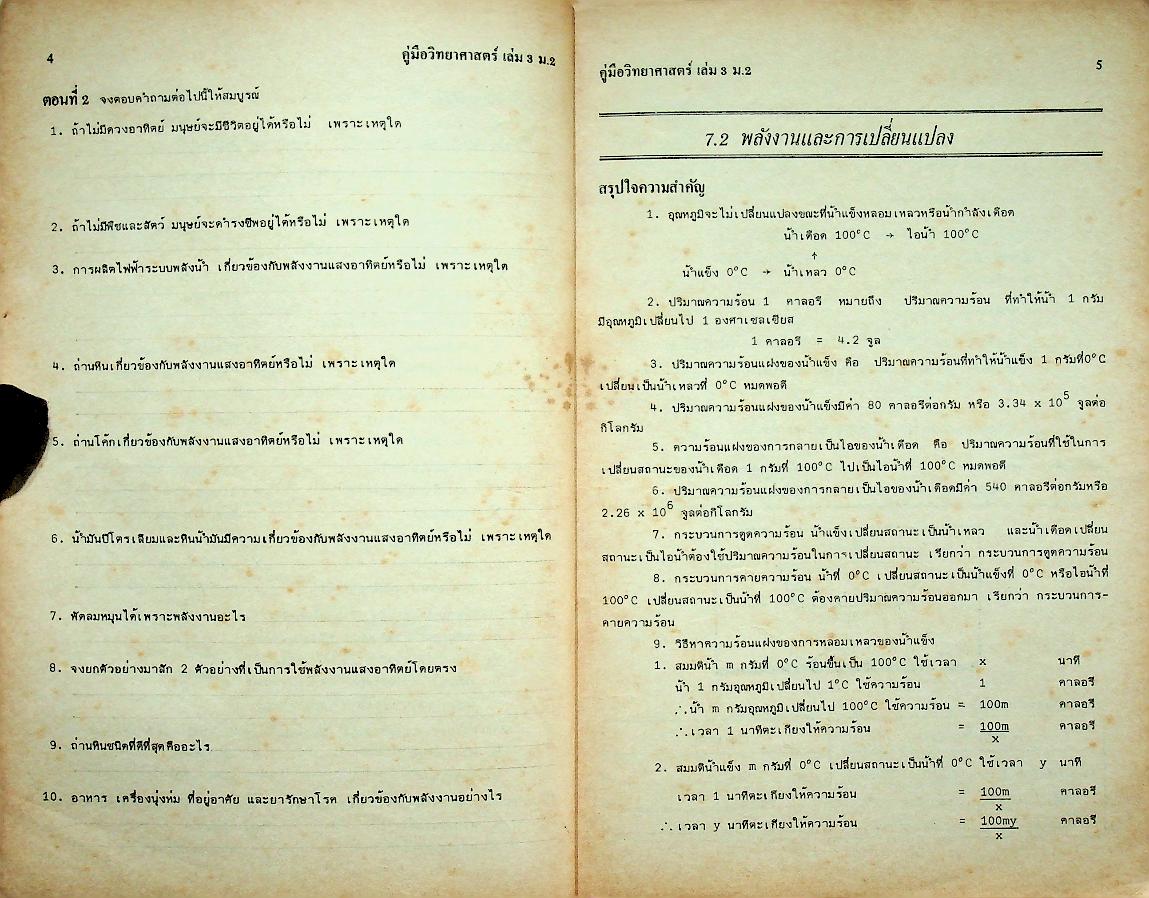 4
คู่มือวิทยาศาสตร์ เล่ม 3 ม.2
ตอนที่ 2 จงตอบคำถามต่อไปนี้ให้สมบูรณ์
1. ถ้าไม่มีดวงอาทิตย์ มนุษย์จะมีชีวิตอยู่ได้หรือไม่ เพราะเหตุใด
2. ถ้าไม่มีพืชและสัตว์ มนุษย์จะดำรงชีพอยู่ได้หรือไม่ เพราะเหตุใด
3. การผลิตไฟฟ้าระบบพลังน้ำ เกี่ยวข้องกับพลังงานแสงอาทิตย์หรือไม่ เพราะเหตุใด
4. ถ่านหินเกี่ยวข้องกับพลังงานแสงอาทิตย์หรือไม่ เพราะเหตุใด
5. ถ่านโค้กเกี่ยวข้องกับพลังงานแสงอาทิตย์หรือไม่ เพราะเหตุใด
6. น้ำมันปิโตรเลียมและหินน้ำมันมีความเกี่ยวข้องกับพลังงานแสงอาทิตย์หรือไม่ เพราะเหตุใด
7. พัดลมหมุนได้เพราะพลังงานอะไร
8. จงยกตัวอย่างมาสัก 2 ตัวอย่างที่เป็นการใช้พลังงานแสงอาทิตย์โดยตรง
9. ถ่านหินชนิดที่ดีที่สุดคืออะไร
10. อาหาร เครื่องนุ่งห่ม ที่อยู่อาศัย และยารักษาโรค เกี่ยวข้องกับพลังงานอย่างไร
คู่มือวิทยาศาสตร์ เล่ม 3 ม.2
5
7.2 พลังงานและการเปลี่ยนแปลง
สรุปใจความสำคัญ
1. อุณหภูมิจะไม่เปลี่ยนแปลงขณะที่น้ำแข็งหลอมเหลวหรือน้ำกำลังเดือด
น้ำเดือด 100°C → ไอน้ำ 100°C
↑
น้ำแข็ง 0°C → น้ำเหลว 0°C
2. ปริมาณความร้อน 1 คาลอรี หมายถึง ปริมาณความร้อน ที่ทำให้น้ำ 1 กรัม
มีอุณหภูมิเปลี่ยนไป 1 องศาเซลเซียส
1 คาลอรี = 4.2 จูล
3. ปริมาณความร้อนแฝงของน้ำแข็ง คือ ปริมาณความร้อนที่ทำให้น้ำแข็ง 1 กรัมที่0°C
เปลี่ยนเป็นน้ำเหลวที่ 0°C หมดพอดี
4. ปริมาณความร้อนแฝงของน้ำแข็งมีค่า 80 คาลอรีต่อกรัม หรือ 3.34 x 10⁵ จูลต่อ
กิโลกรัม
5. ความร้อนแฝงของการกลายเป็นไอของน้ำเดือด คือ ปริมาณความร้อนที่ใช้ในการ
เปลี่ยนสถานะของน้ำเดือด 1 กรัมที่ 100°C ไปเป็นไอน้ำที่ 100°C หมดพอดี
6. ปริมาณความร้อนแฝงของการกลายเป็นไอของน้ำเดือดมีค่า 540 คาลอรีต่อกรัมหรือ
2.26 x 10⁶ จูลต่อกิโลกรัม
7. กระบวนการดูดความร้อน น้ำแข็งเปลี่ยนสถานะเป็นน้ำเหลว และน้ำเดือดเปลี่ยน
สถานะเป็นไอน้ำต้องใช้ปริมาณความร้อนในการเปลี่ยนสถานะ เรียกว่า กระบวนการดูดความร้อน
8. กระบวนการคายความร้อน น้ำที่ 0°C เปลี่ยนสถานะเป็นน้ำแข็งที่ 0°C หรือไอน้ำที่
100°C เปลี่ยนสถานะเป็นน้ำที่ 100°C ต้องคายปริมาณความร้อนออกมา เรียกว่า กระบวนการ-
คายความร้อน
9. วิธีหาความร้อนแฝงของการหลอมเหลวของน้ำแข็ง
1. สมมติน้ำ m กรัมที่ 0°C ร้อนขึ้นเป็น 100°C ใช้เวลา x นาที
น้ำ 1 กรัมอุณหภูมิเปลี่ยนไป 1°C ใช้ความร้อน 1 คาลอรี
∴น้ำ m กรัมอุณหภูมิเปลี่ยนไป 100°C ใช้ความร้อน = 100m คาลอรี
∴เวลา 1 นาทีตะเกียงให้ความร้อน = 100m คาลอรี
x
2. สมมติน้ำแข็ง m กรัมที่ 0°C เปลี่ยนสถานะเป็นน้ำที่ 0°C ใช้เวลา y นาที
เวลา 1 นาทีตะเกียงให้ความร้อน = 100m คาลอรี
x
∴เวลา y นาทีตะเกียงให้ความร้อน = 100my คาลอรี
x